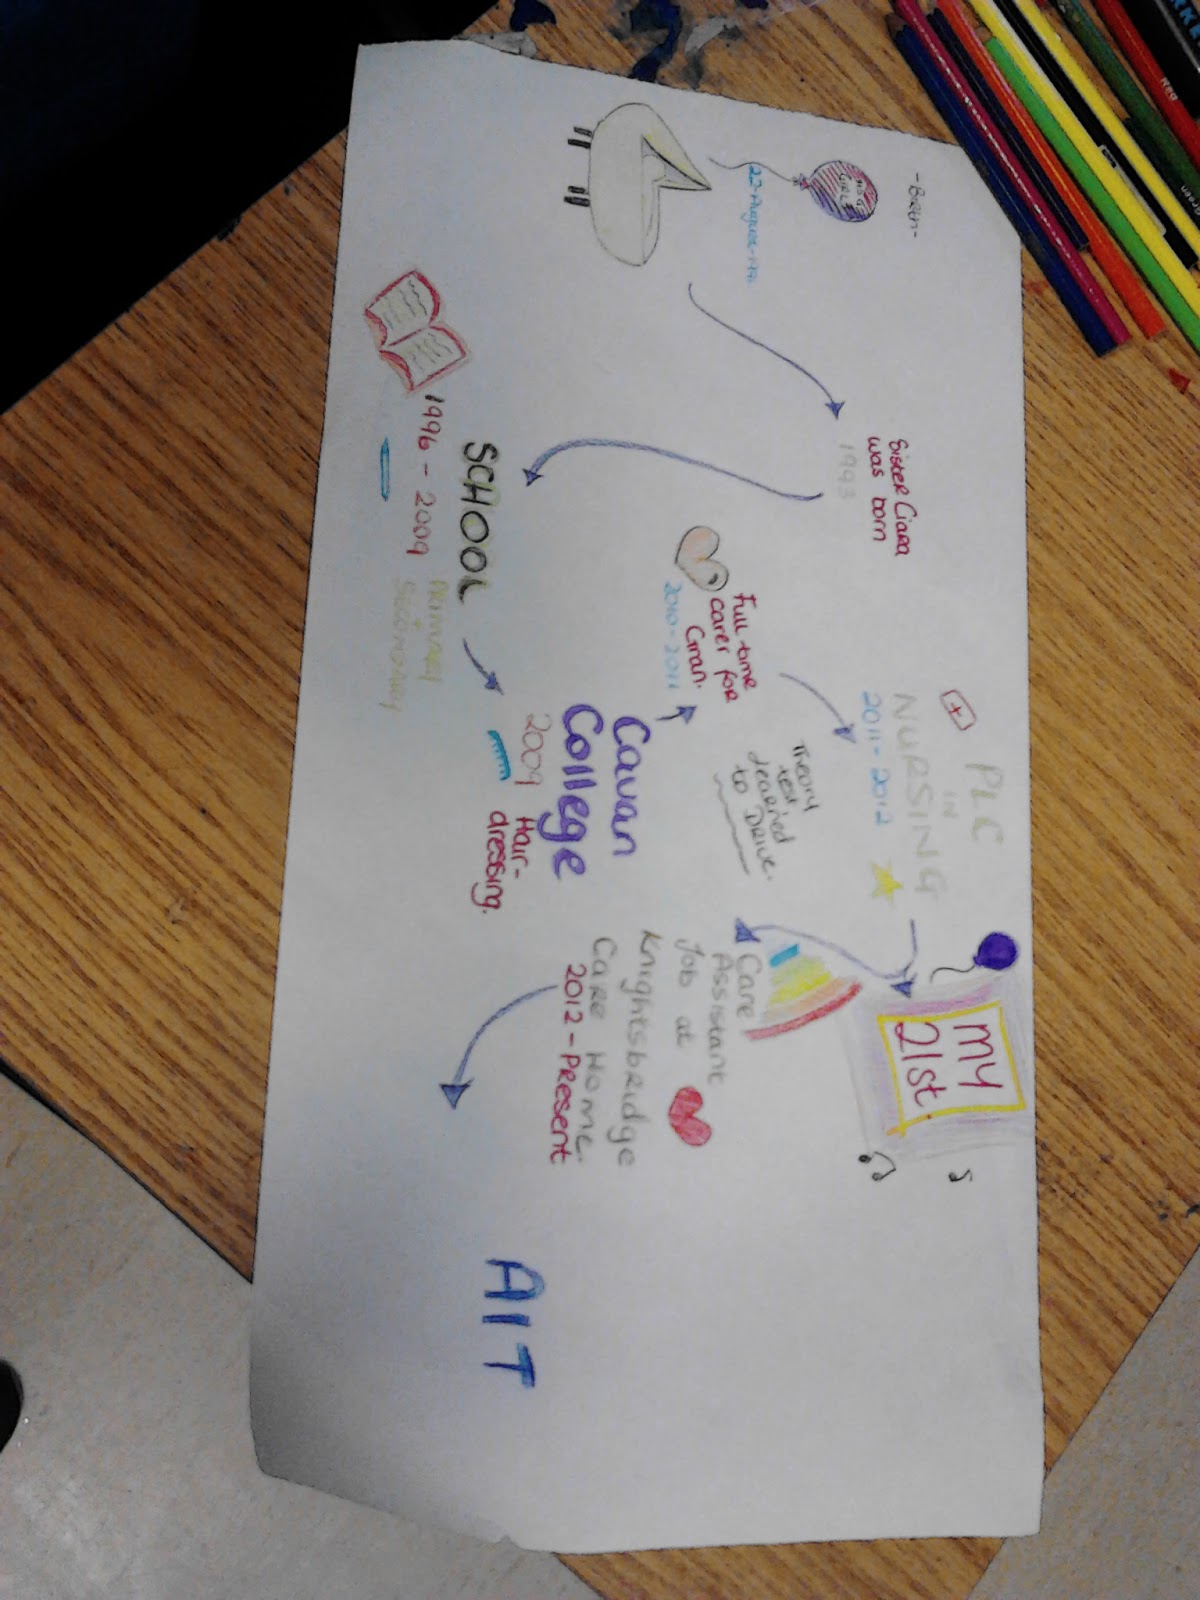 -Birth-
ITS A
GIRL
Sister Ciara
was born
1993
SCHOOL
1996 - 2009
PRIMARY
+
SECONDARY
Cavan
College
2009
Hair-
dressing.
Full-time
carer for
Gran.
2010-2011
Theory
test
learned
to DRIVE.
PLC
IN
NURSING
2011-2012
MY
21st
Care
Assistant
Job at
Knightsbridge
Care Home.
2012-Present
AIT
Red
Green